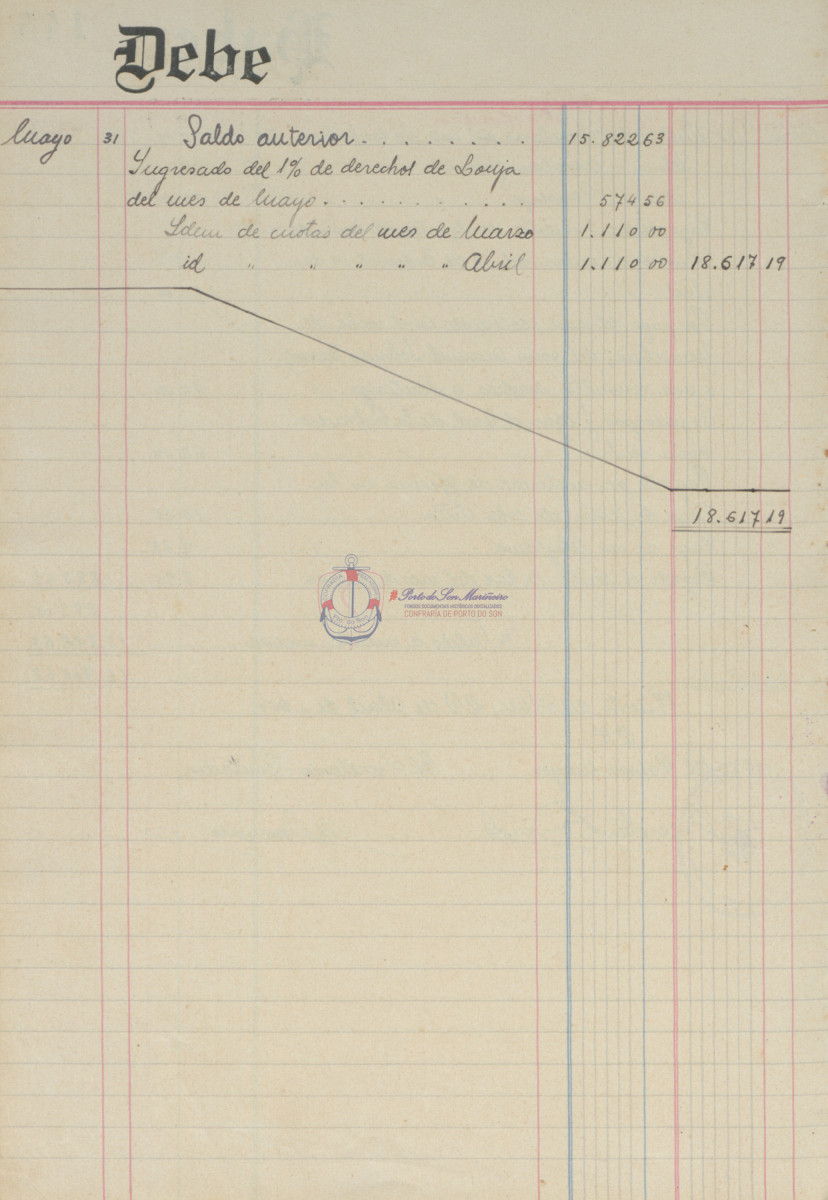 Debe
Mayo 31 Saldo anterior . . . . . . . . 15.822 63
Ingresado del 1% de derechos de Lonja
del mes de Mayo . . . . . . . . . . . 574 56
Idem de cuotas del mes de Marzo 1.110 00
id " " " " " Abril 1.110 00 18.617 19
18.617 19
#PortodoSonMariñeiro
FONDOS DOCUMENTAIS HISTÓRICOS DIXITALIZADOS
CONFRARÍA DE PORTO DO SON